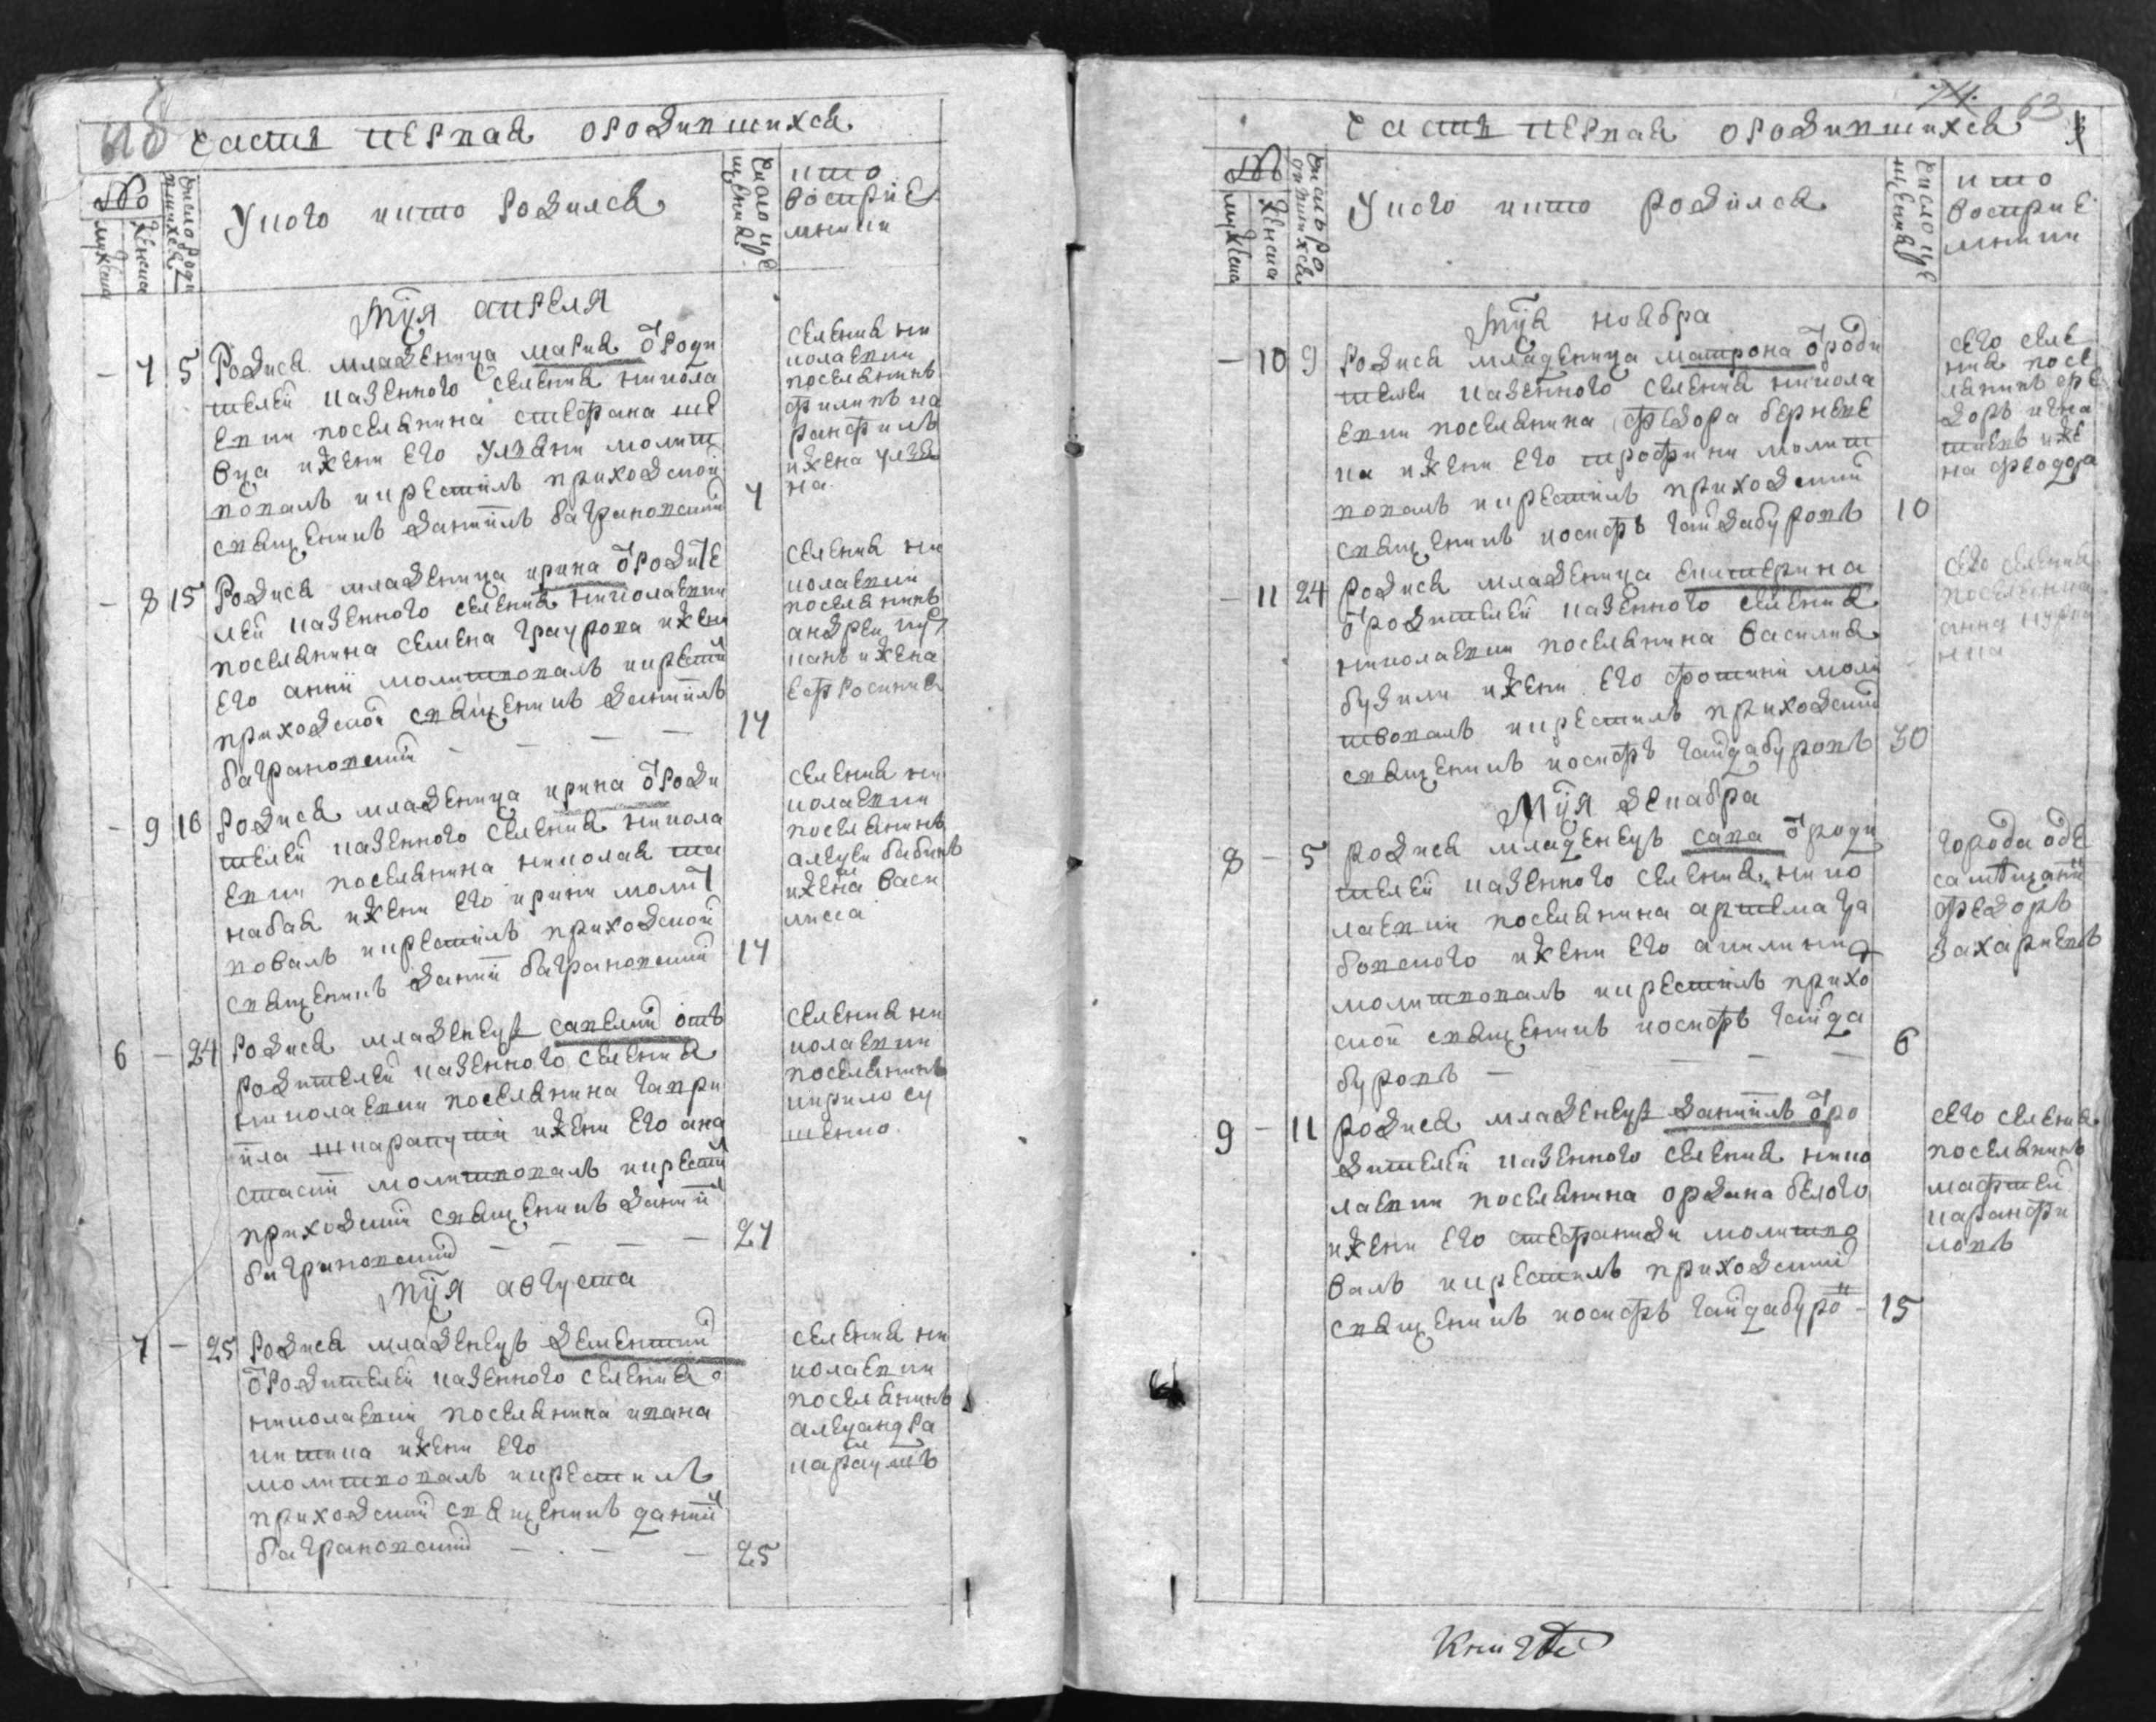 часть первая о родившихся
№
мужеска
женска
число роди
вшихся
У кого и кто родился
число кре
щения
кто
восприе
мники
мця апреля
7 5 Родися младеница мария ѿ роди
телей казенного селения никола
евки поселянина стефана ше
вца и жени его уляни молит
вовалъ и крестилъ приходской
священикъ даниилъ багриновский 7
селения ни
колаевки
поселянинъ
филипъ ка
ранфилъ
и жена уля
на
8 15 Родися младеница ирина ѿ родите
лей казенного селения николаевки
поселянина семена граурова и жени
его аннй молитвовалъ и крестил
приходской священикъ даниилъ
баграновский 17
селения ни
колаевки
поселянинъ
андрей
и жена
ефросиния
9 16 Родися младеница ирина ѿ роди
телей казенного селения никола
евки поселянина николая та
набая и жени его ирини молит
вовалъ и крестилъ приходской
священикъ даниил баграновский 17
селения ни
колаевки
поселянинъ
алексѣй бабинъ
и жена васи
лиса
6 24 Родися младенецъ савелий отъ
родителей казенного селения
николаевки поселянина гаври
ила шкарапути и жени его ана
стасии молитвовалъ и крестил
приходский священикъ даниил
баграновский 27
селения ни
колаевки
поселянинъ
кирило су
шенко
мця августа
7 25 Родися младенецъ дементий
ѿ родителей казенного селения
николаевки поселянина ивана
китика и жени его
молитвовалъ и крестилъ
приходский священикъ даниил
баграновский 25
селения ни
колаевки
поселянинъ
александра
караулъ
74 63
часть первая о родившихся
№
мужеска
женска
число ро
дившихся
У кого и кто родился
число кре
щения
кто
восприе
мники
мця ноября
10 9 Родися младеница матрона ѿ роди
телей казенного селения никола
евки поселянина федора берневе
ка и жени его трофини молит
вовалъ и крестилъ приходский
священикъ иосифъ гайдабуровъ 10
сего селе
ния посе
лянинъ фе
доръ игна
тиевъ и же
на феодора
11 24 Родися младеница екатерина
ѿ родителей казенного селения
николаевки поселянина василия
бузили и жени его фотини моли
твовалъ и крестилъ приходский
священикъ иосифъ гайдабуровъ 30
сего селения
поселянка
анна
мця декабра
8 5 Родися младенецъ сава ѿ роди
телей казенного селения нико
лаевки поселянина артема за
бовского и жени его акилини
молитвовалъ и крестилъ прихо
ской священикъ иосифъ гайда
буровъ 6
города оде
са мѣщанин
федоръ
захариевъ
9 11 Родися младенецъ даниилъ ѿ ро
дителей казенного селения нико
лаевки поселянина ордина белого
и жени его стефаниди молитво
валъ и крестилъ приходский
священикъ иосифъ гайдабуров 15
сего селения
поселянинъ
мафтей
каранфи
ловъ